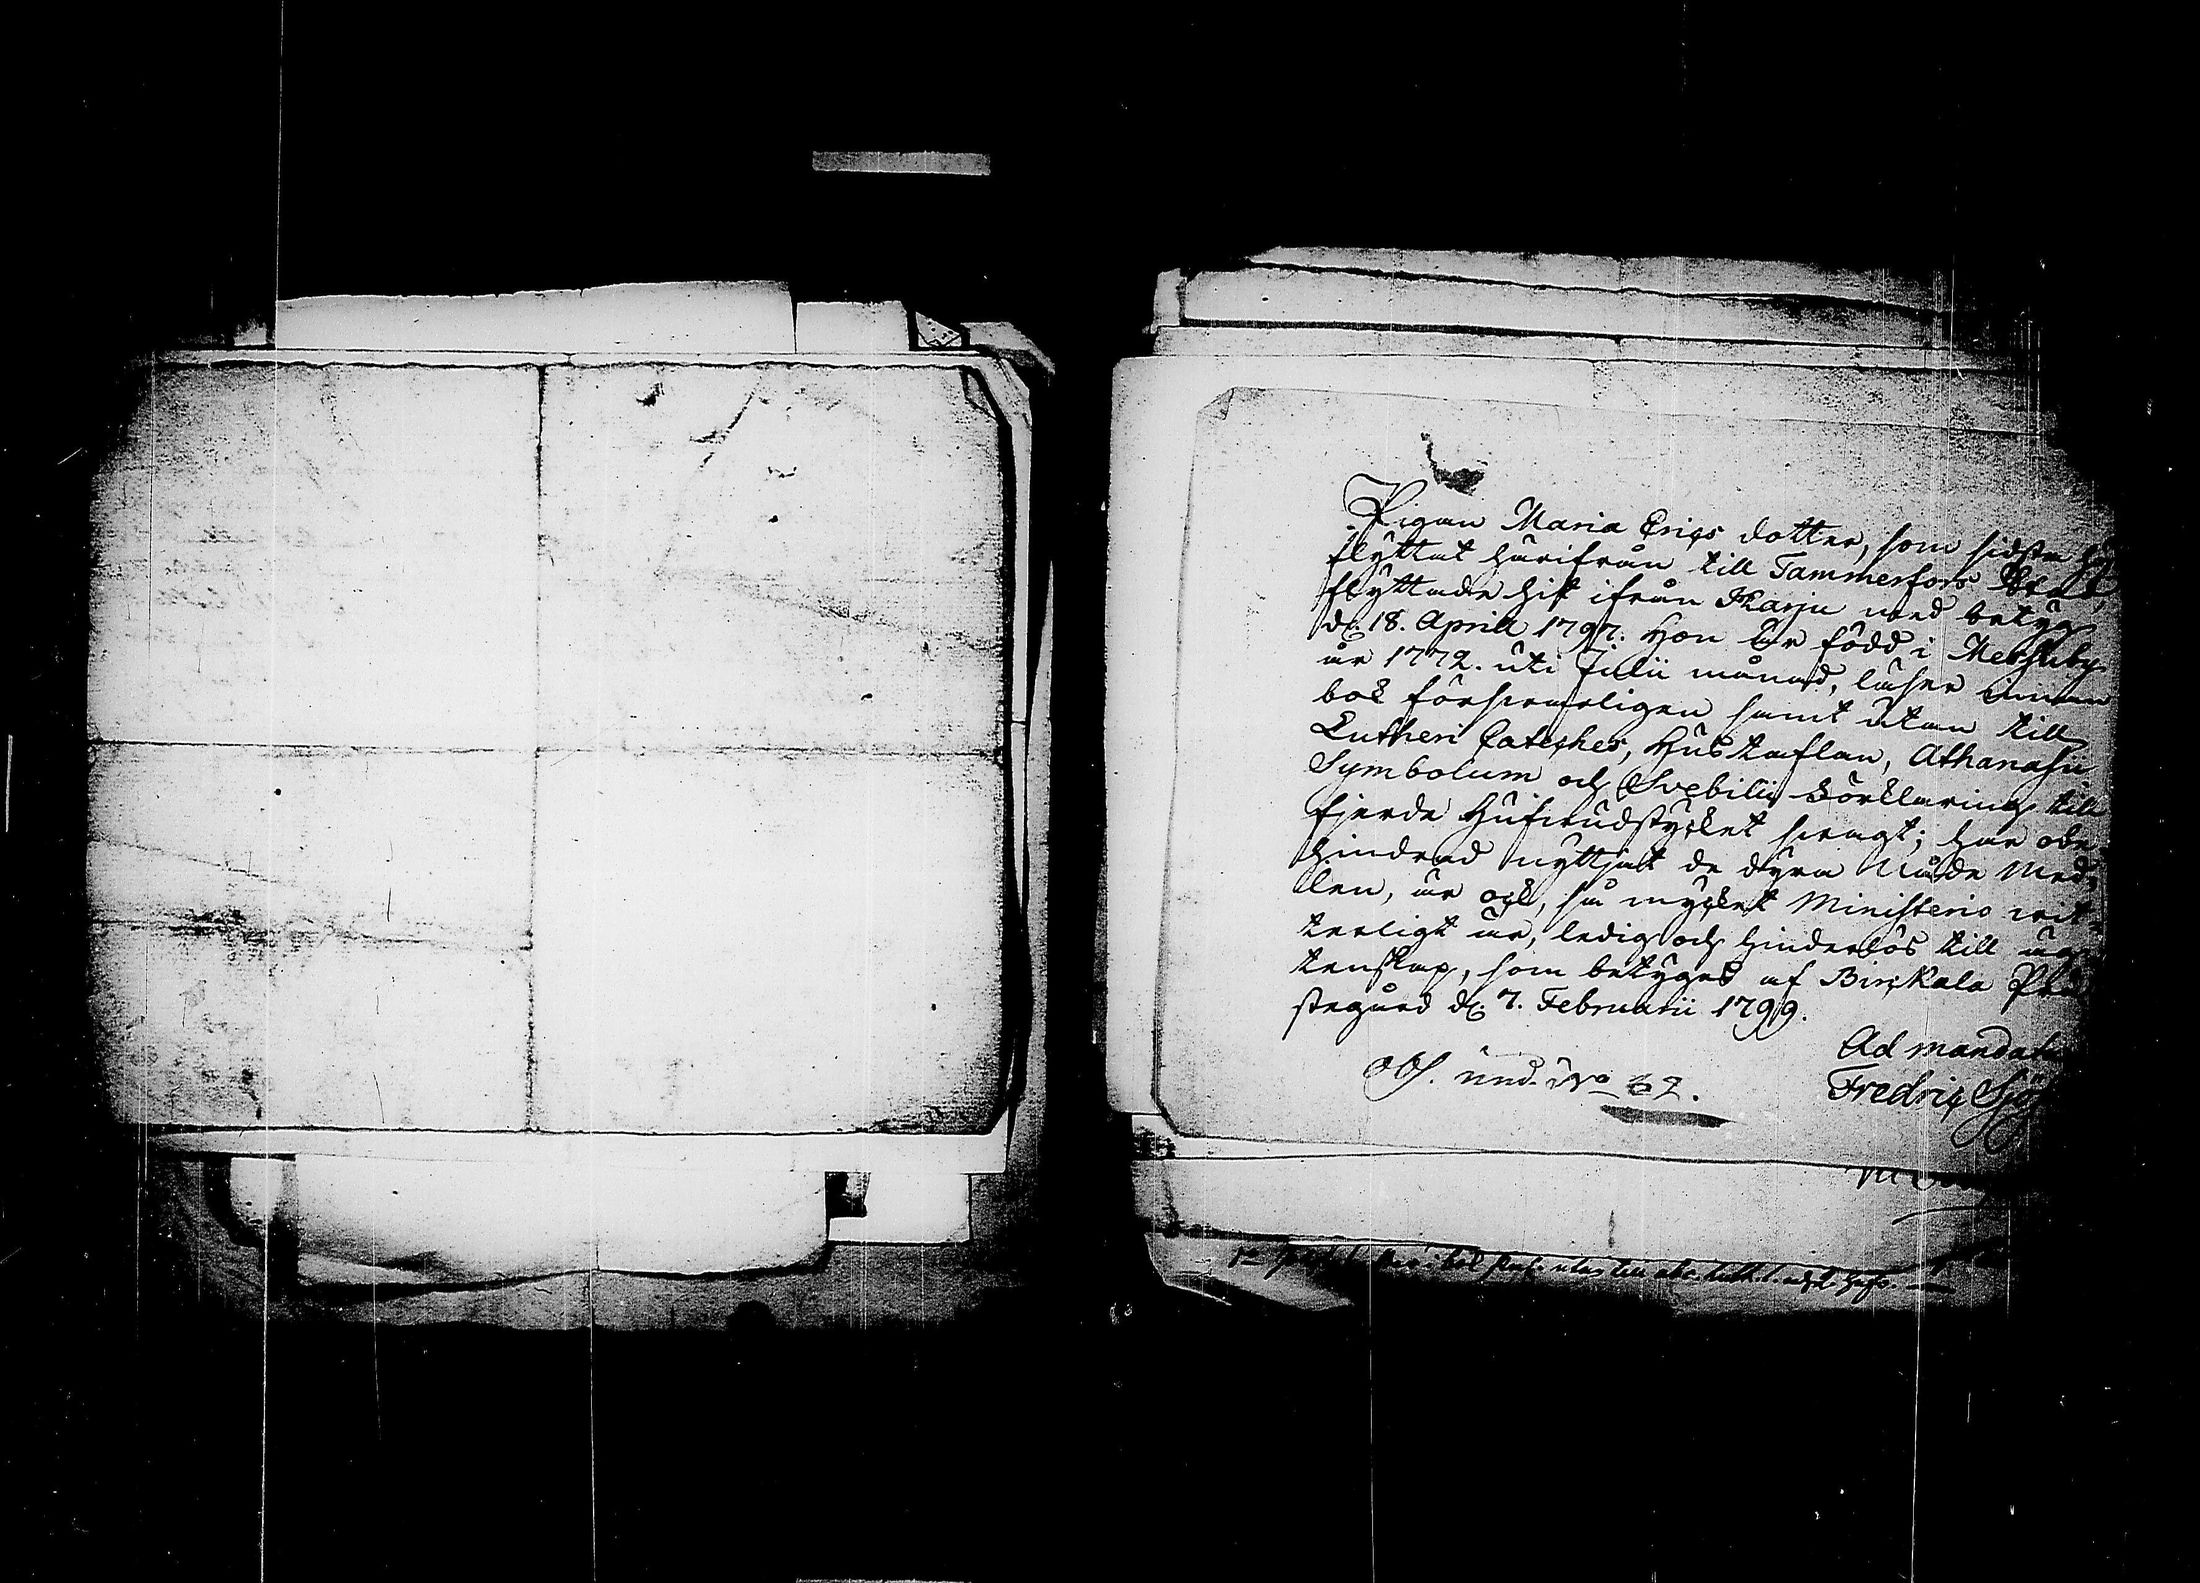 Pigan Maria Erics dotter, som sidstn
flyttat härifrån till Tammerfors Stad,
flyttade hit ifrån Karju med betyg
d. 18. April 1797. Hon är född i Meskuby
år 1772. uti Julii månad, läser innan
bok försvarligen samt utan till
Lutheri Cateches, Hustaflan, Athanasii
Symbolum och Svebilii Förklaring till
fjerde Hufvudstycket svagt; har obe-
hindrad nyttjat de dyra Nåde Med-
len, är ock, så mycket Ministerio vit-
terligt är, ledig och hinderlös till äg-
tenskap, som betygas af Birkala Prä-
stegård d. 7. Februarii 1799.
Ad mandatu
Fredric Sjö
Obs. und. No 62.